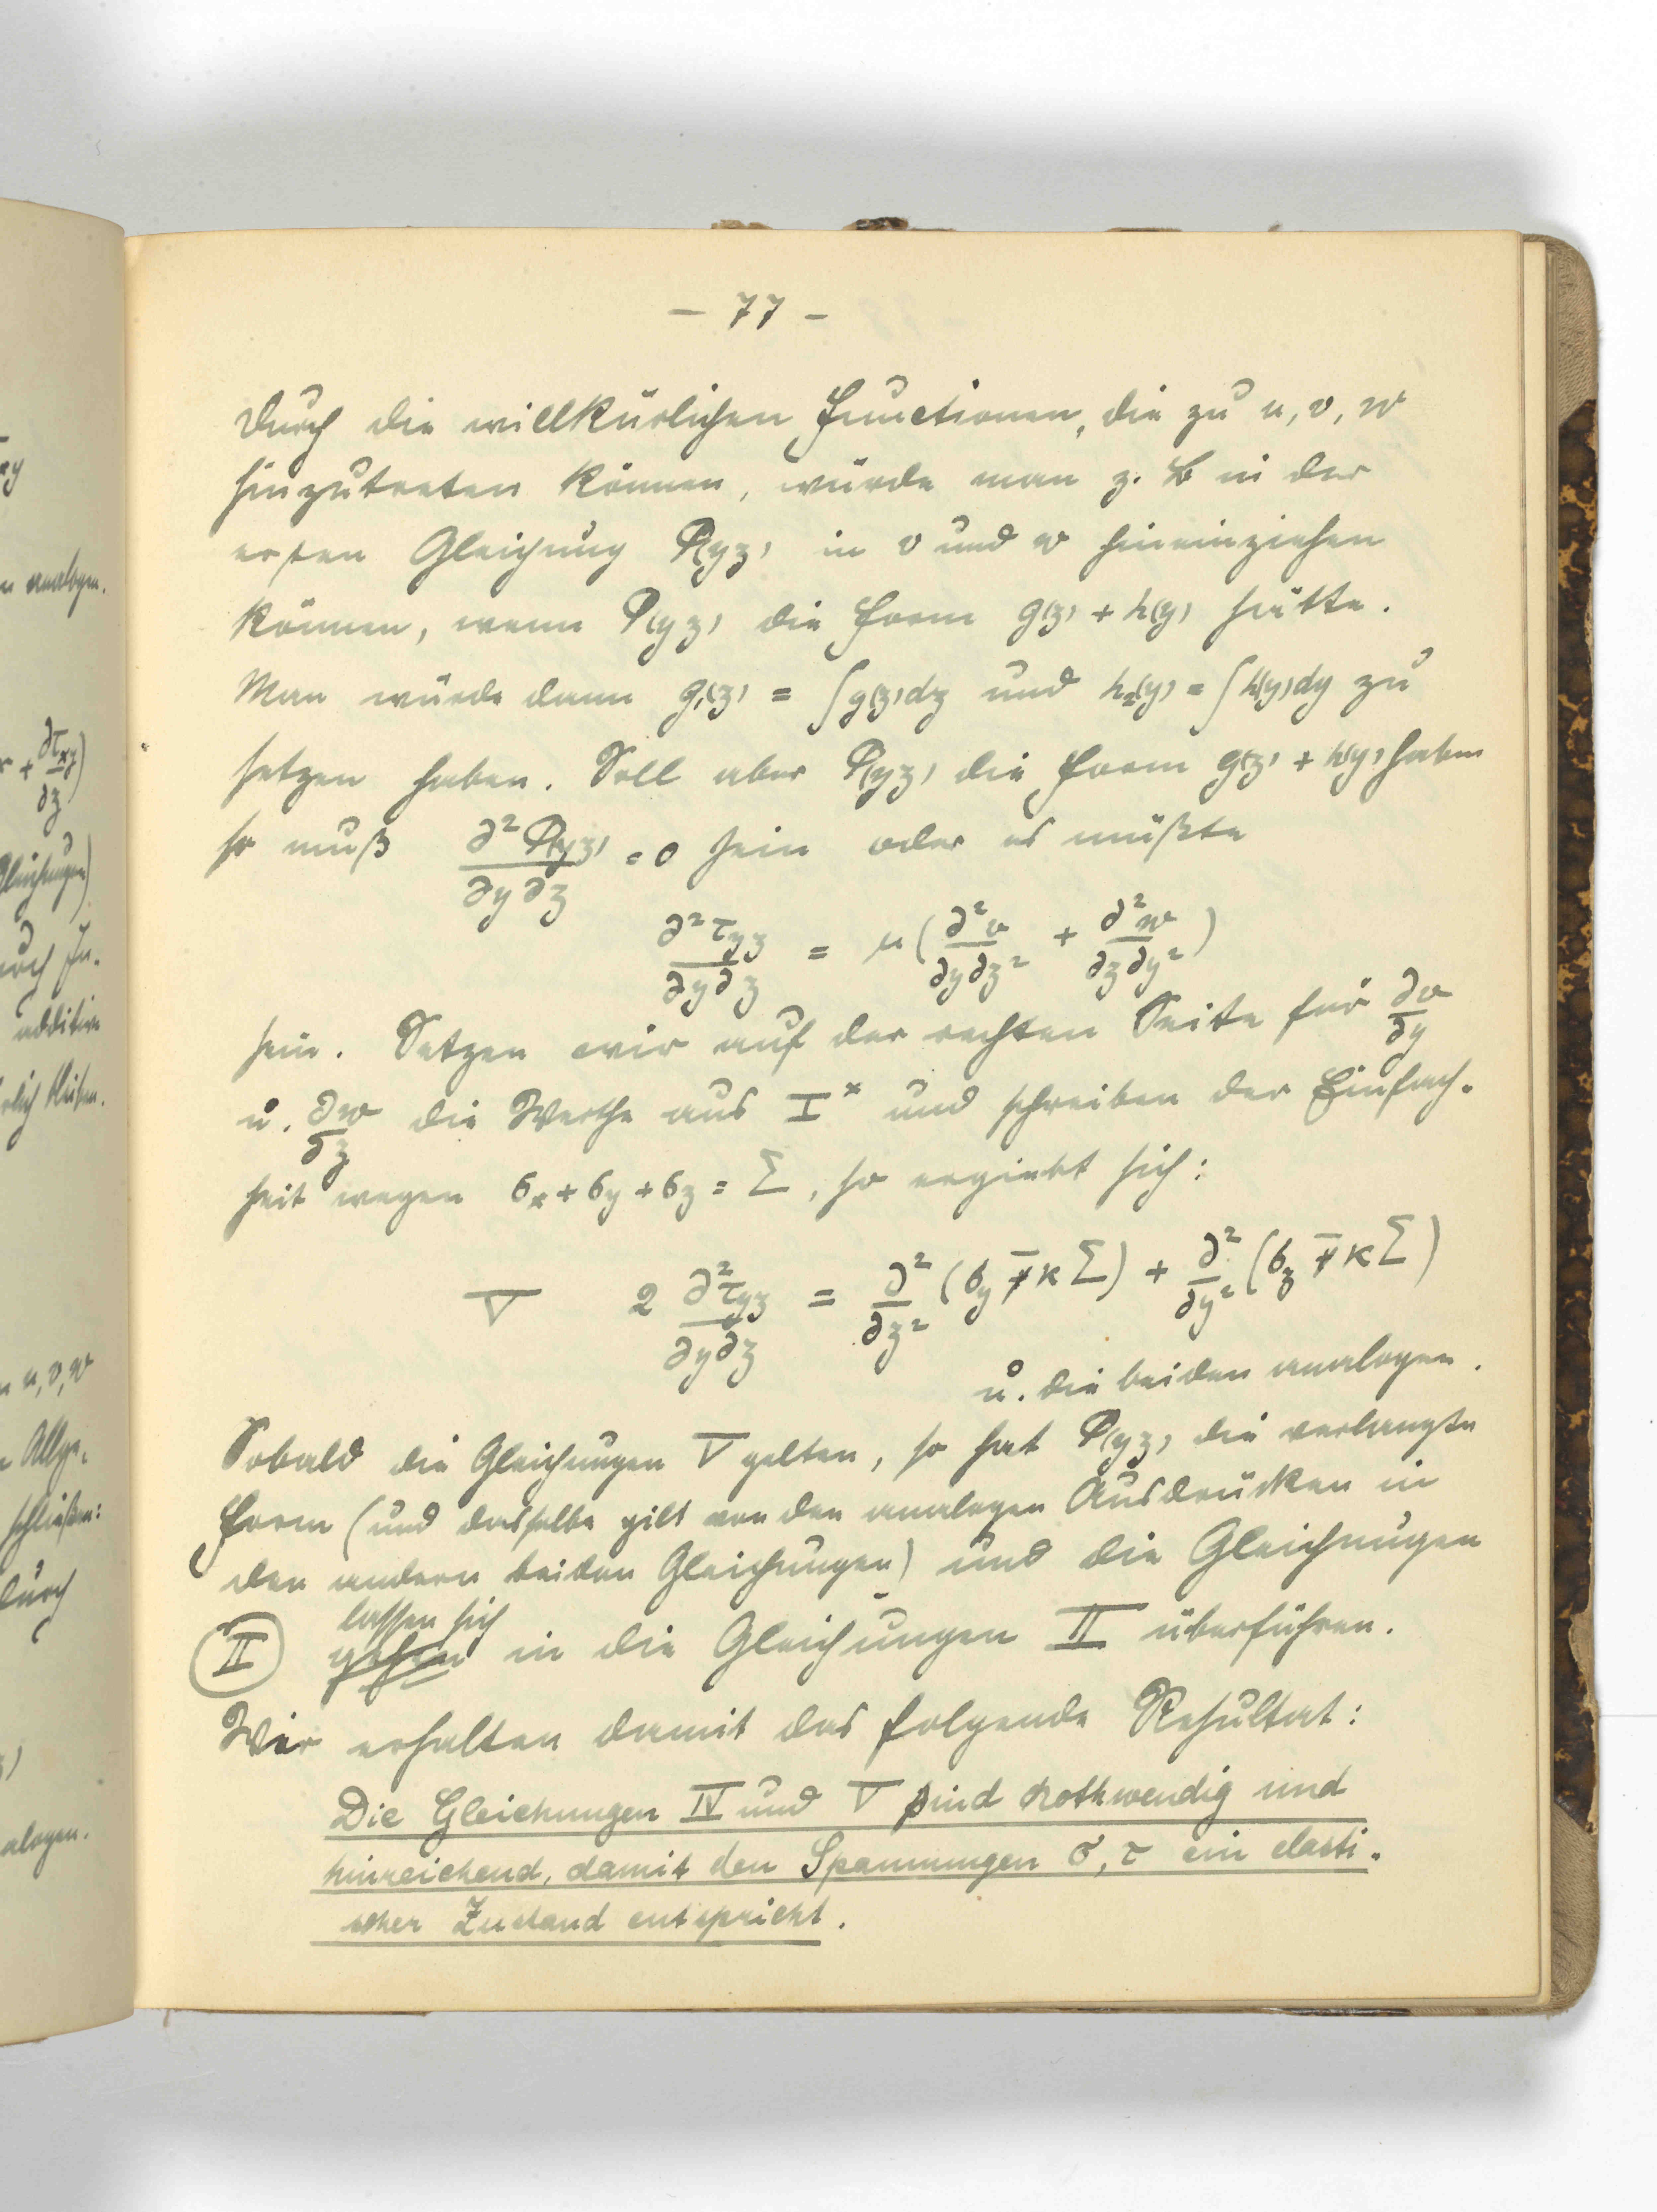 – 77 –
durch die willkürlichen Functionen, die zu u, v, w
hinzutreten können, würde man z. B in der
ersten Gleichung P(yz) in v und w hineinziehen
können, wenn P(yz) die Form g(z) + h(y) hätte.
Man würde dann g₁(z) = ∫g(z)dz und h₂(y) = ∫h(y)dy zu
setzen haben. Soll aber P(yz) die Form g(z) + h(y) haben
so muß ∂²P(yz)/∂y∂z = 0 sein oder es müßte
∂²τyz/∂y∂z = μ(∂²v/∂y∂z² + ∂²w/∂z∂y²)
sein. Setzen wir auf der rechten Seite für ∂v/∂y
u. ∂w/∂z die Werthe aus I* und schreiben der Einfach-
heit wegen σx + σy + σz = Σ, so ergiebt sich:
V 2 ∂²τyz/∂y∂z = ∂²/∂z² (σy – κΣ) + ∂²/∂y² (σz – κΣ)
u. die beiden analogen.
Sobald die Gleichungen V gelten, so hat P(yz) die verlangte
Form (und dasselbe gilt von den analogen Ausdrücken in
den andern beiden Gleichungen) und die Gleichungen
lassen sich
(II) gehen in die Gleichungen II überführen.
Wir erhalten damit das folgende Resultat:
Die Gleichungen IV und V sind nothwendig und
hinreichend, damit den Spannungen σ, τ ein elasti-
scher Zustand entspricht.